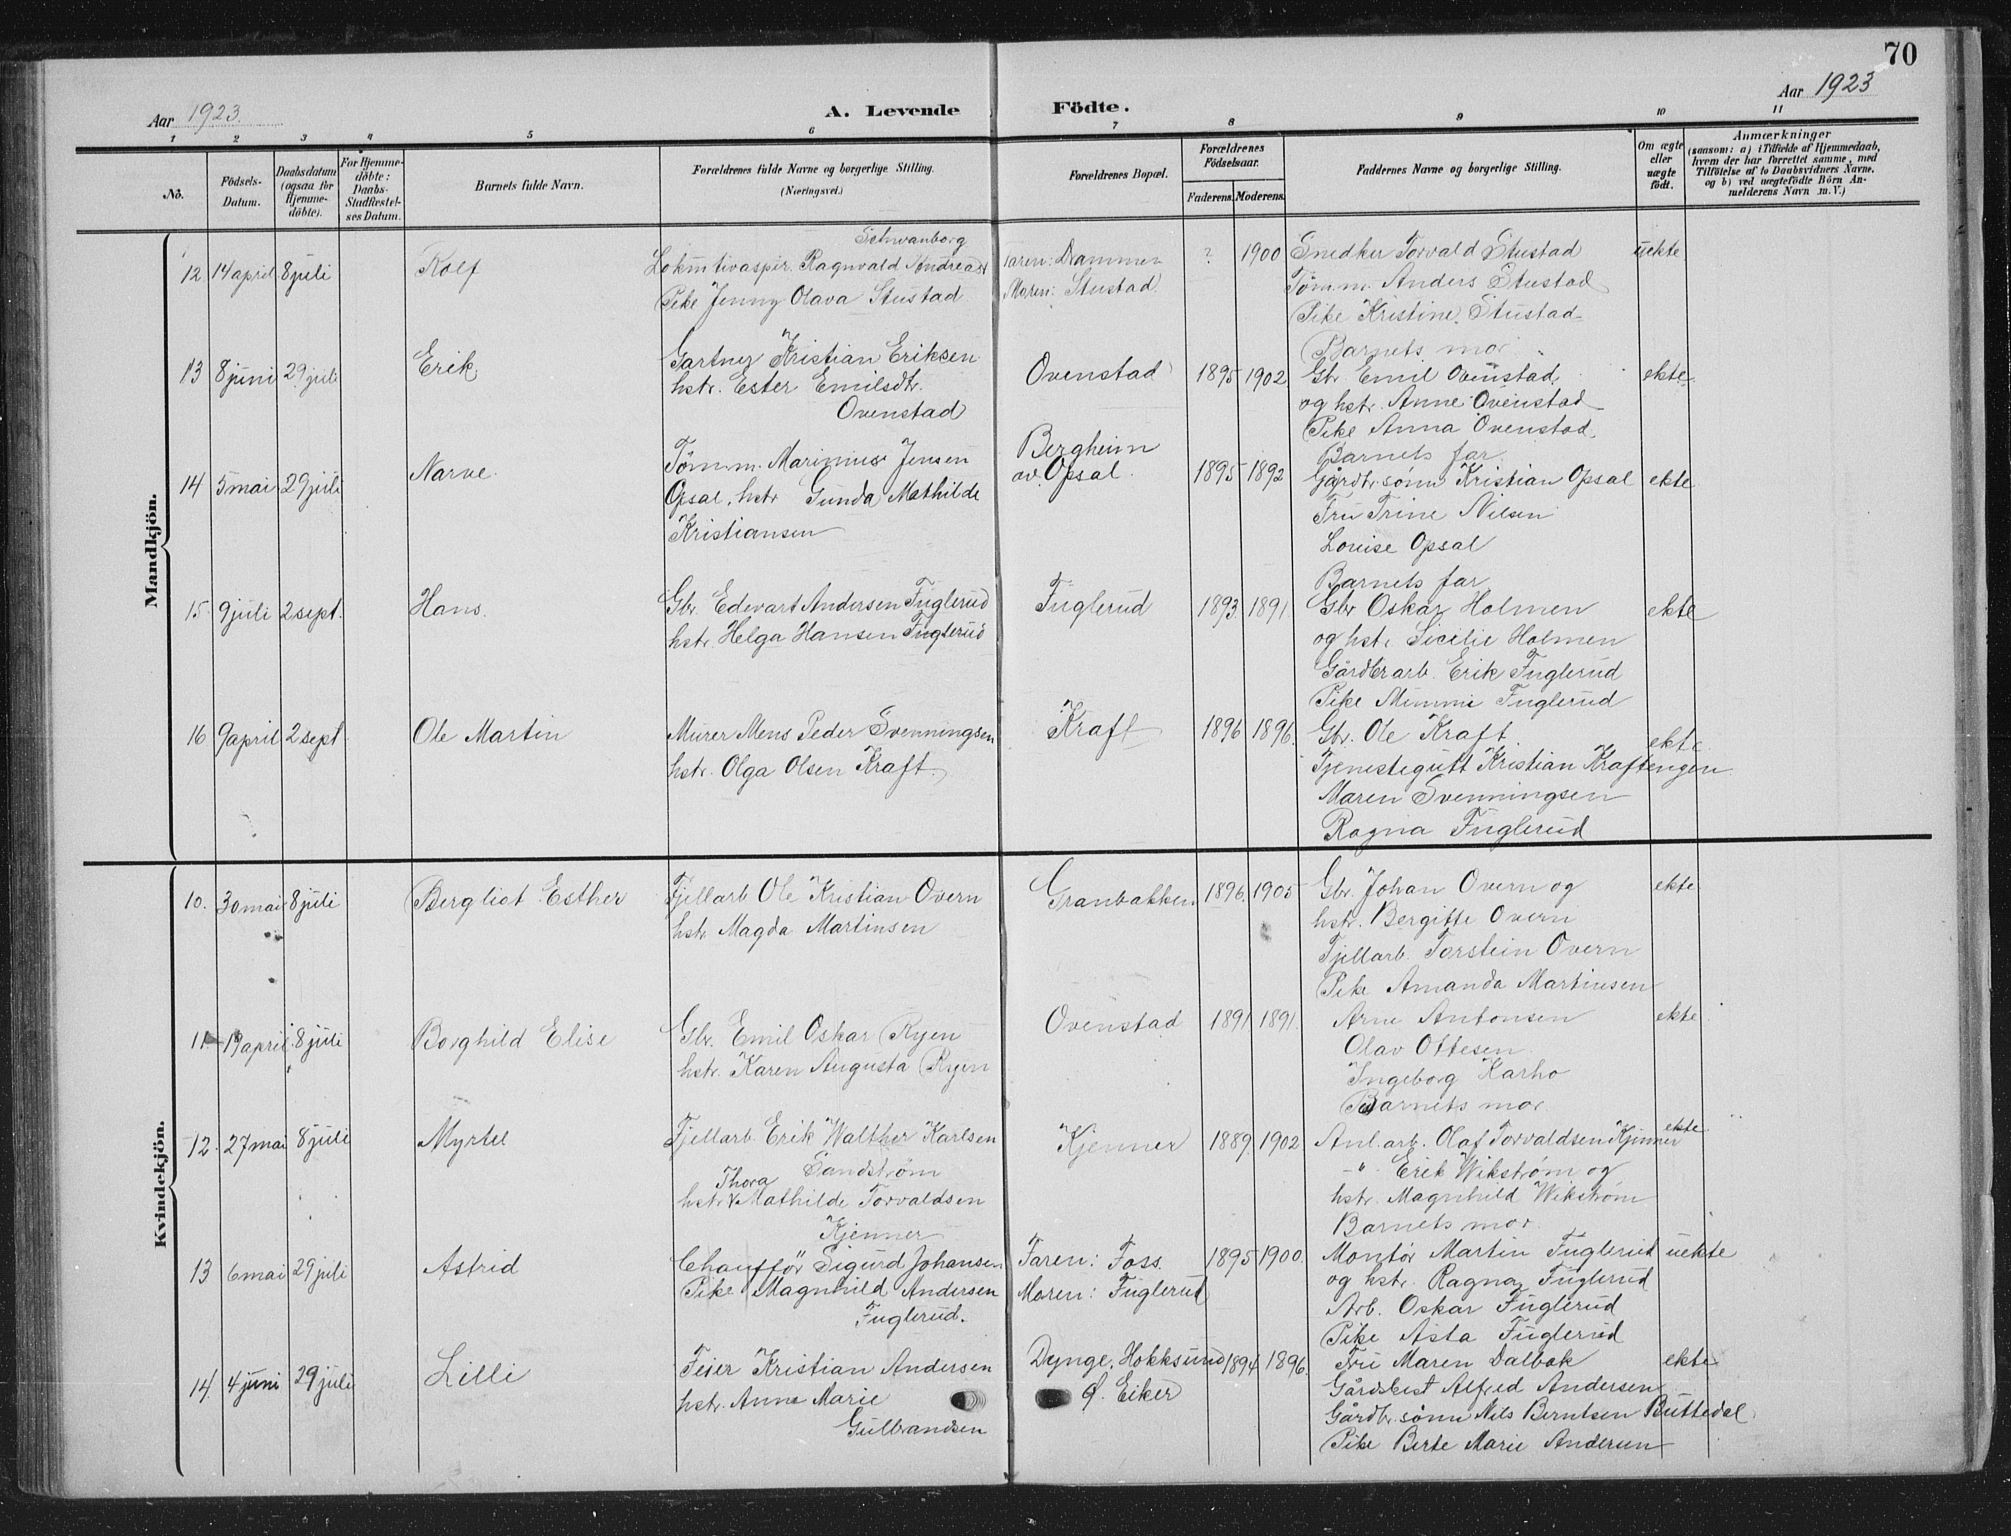 70
Aar 1923.
A. Levende Födte.
Aar 1923
1 2 3 4 5 6 7 8 9 10 11
No.
Födsels-Datum.
Daabsdatum (ogsaa for Hjemme-döbte).
For Hjemme-döbte: Daabs-Stadfæstel-ses Datum.
Barnets fulde Navn.
Forældrenes fulde Navne og borgerlige Stilling. (Næringsvei.)
Forældrenes Bopæl.
Forældrenes Födselsaar.
Faderens. Moderens.
Faddernes Navne og borgerlig Stilling.
Om ægte eller uægte födt.
Anmærkninger
(saasom: a) i Tilfælde af Hjemmedaab, hvem der har forrettet samme, med Tilföielse af to Daabsvidners Navne. og b) ved uægtefödte Börn An-melderens Navn m. V.)
Mandkjön.
12 14 april 8 juli Rolf
Schwanborg
Lokmtivaspir. Ragnvald Andreas
Pike Jenny Olava Stustad
Faren: Drammen
Moren: Stustad
? 1900
Snedker Torvald Stustad
Tømm. Anders Stustad
Pike Kristine Stustad
Barnets mor
uekte
13 8 juni 29 juli Erik
Gartner Kristian Eriksen
hstr. Ester Emilsdtr.
Ovenstad
Ovenstad 1895 1902
Gbr. Emil Ovenstad,
og hstr. Anne Ovenstad
Pike Anna Ovenstad
Barnets far
ekte
14 5 mai 29 juli Narve
Tømm. Marinius Jensen
Opsal, hstr Gunda Mathilde
Kristiansen
Bergheim
av Opsal.
1895 1892
Gårdbr.sønn Kristian Opsal
Fru Trine Nilsen
Louise Opsal
Barnets far
ekte
15 9 juli 2 sept. Hans.
Gbr. Edevart Andersen Fuglerud
hstr Helga Hansen Fuglerud
Fuglerud 1893. 1891.
Gbr Oskar Holmen
og hstr Sicilie Holmen
Gårdbrarb. Erik Fuglerud
Pike Mimmi Fuglerud
ekte
16 9 april 2 sept Ole Martin
Murer Mens Peder Svenningsen
hstr. Olga Olsen Kraft.
Kraft 1896 1896.
Gbr. Ole Kraft.
Tjenestegutt Kristian Kraftengen
Maren Svenningsen
Ragna Fuglerud
ekte
Kvindekjön.
10. 30 mai 8 juli Bergliot Esther
Fjellarb Ole Kristian Overn
hstr Magda Martinsen
Granbakken 1896. 1905
Gbr. Johan Overn og
hstr. Bergitte Overn
Fjellarb. Torstein Overn
Pike Amanda Martinsen
ekte
11. 19 april 8 juli Borghild Elise
Gbr. Emil Oskar Ryen
hstr. Karen Augusta Ryen
Ovenstad 1891 1891.
Arne Antonsen
Olav Ottesen
Ingeborg Karho
Barnets mor
ekte
12. 27 mai 8 juli Myrtel
Fjellarb. Erik Walther Karlsen
Sandstrøm
Thora
hstr Mathilde Torvaldsen
Kjenner
Kjenner 1889. 1902
Anl.arb. Olaf Torvaldsen Kjenner
-"- Erik Wikstrøm og
hstr. Magnhild Wikstrøm
Barnets mor
ekte
13 6 mai 29 juli Astrid
Chauffør Sigurd Johansen
Pike Magnhild Andersen
Fuglerud.
Faren: Foss.
Moren: Fuglerud
1895 1900.
Montør Martin Fuglerud
og hstr. Ragna Fuglerud
Arb. Oskar Fuglerud
Pike Asta Fuglerud
uekte
14 4 juni 29 juli Lilli
Feier Kristian Andersen
hstr. Anna Marie
Gulbrandsen
Dynge, Hokksund
Ø. Eiker
1894 1896.
Fru Maren Dalbak
Gårdbest Alfred Andersen
Gårdbr.sønn Nils Berntsen Buttedal
Pike Berte Marie Andersen
ekte